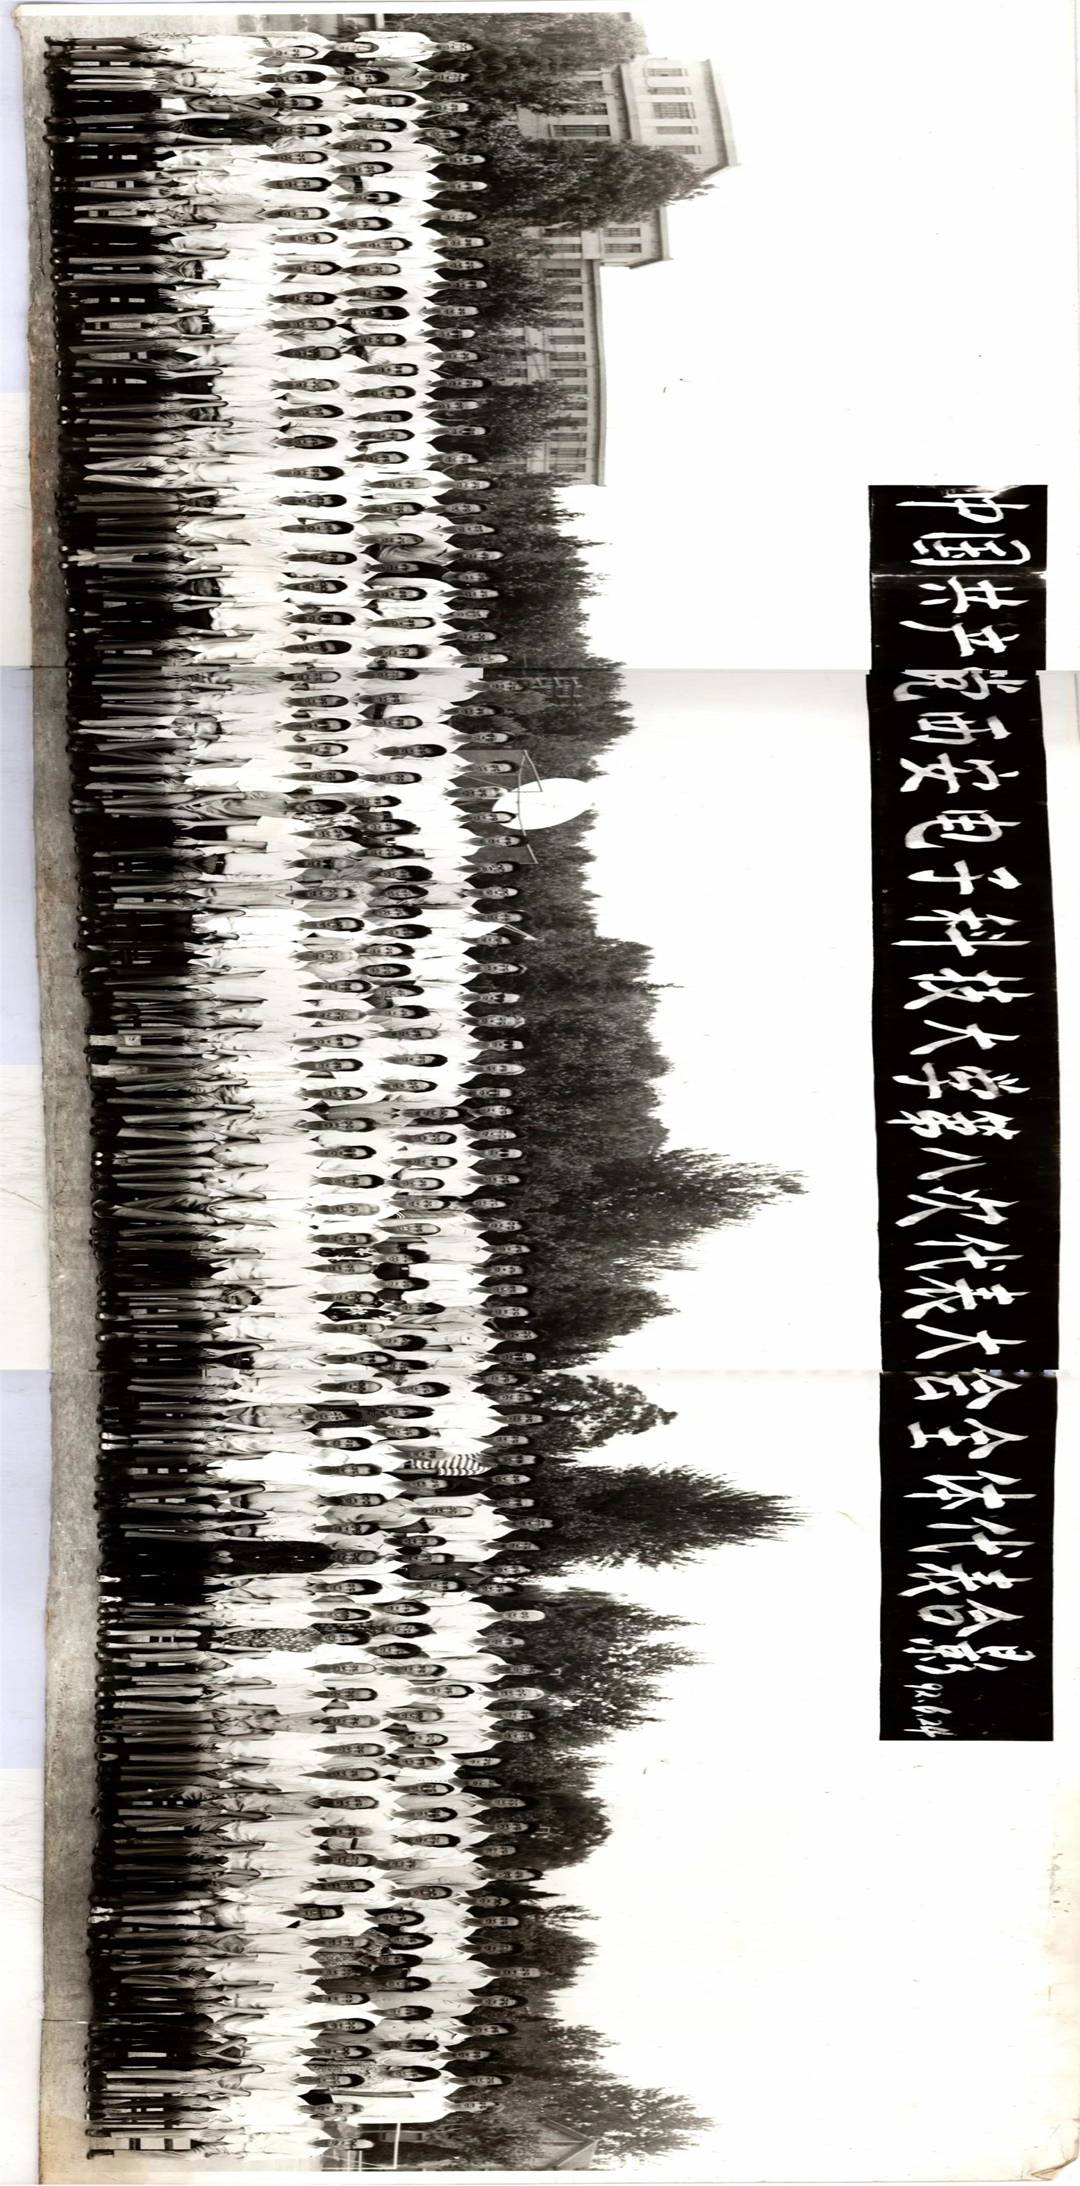 中国共产党西安电子科技大学第八次代表大会全体代表合影 92.6.24